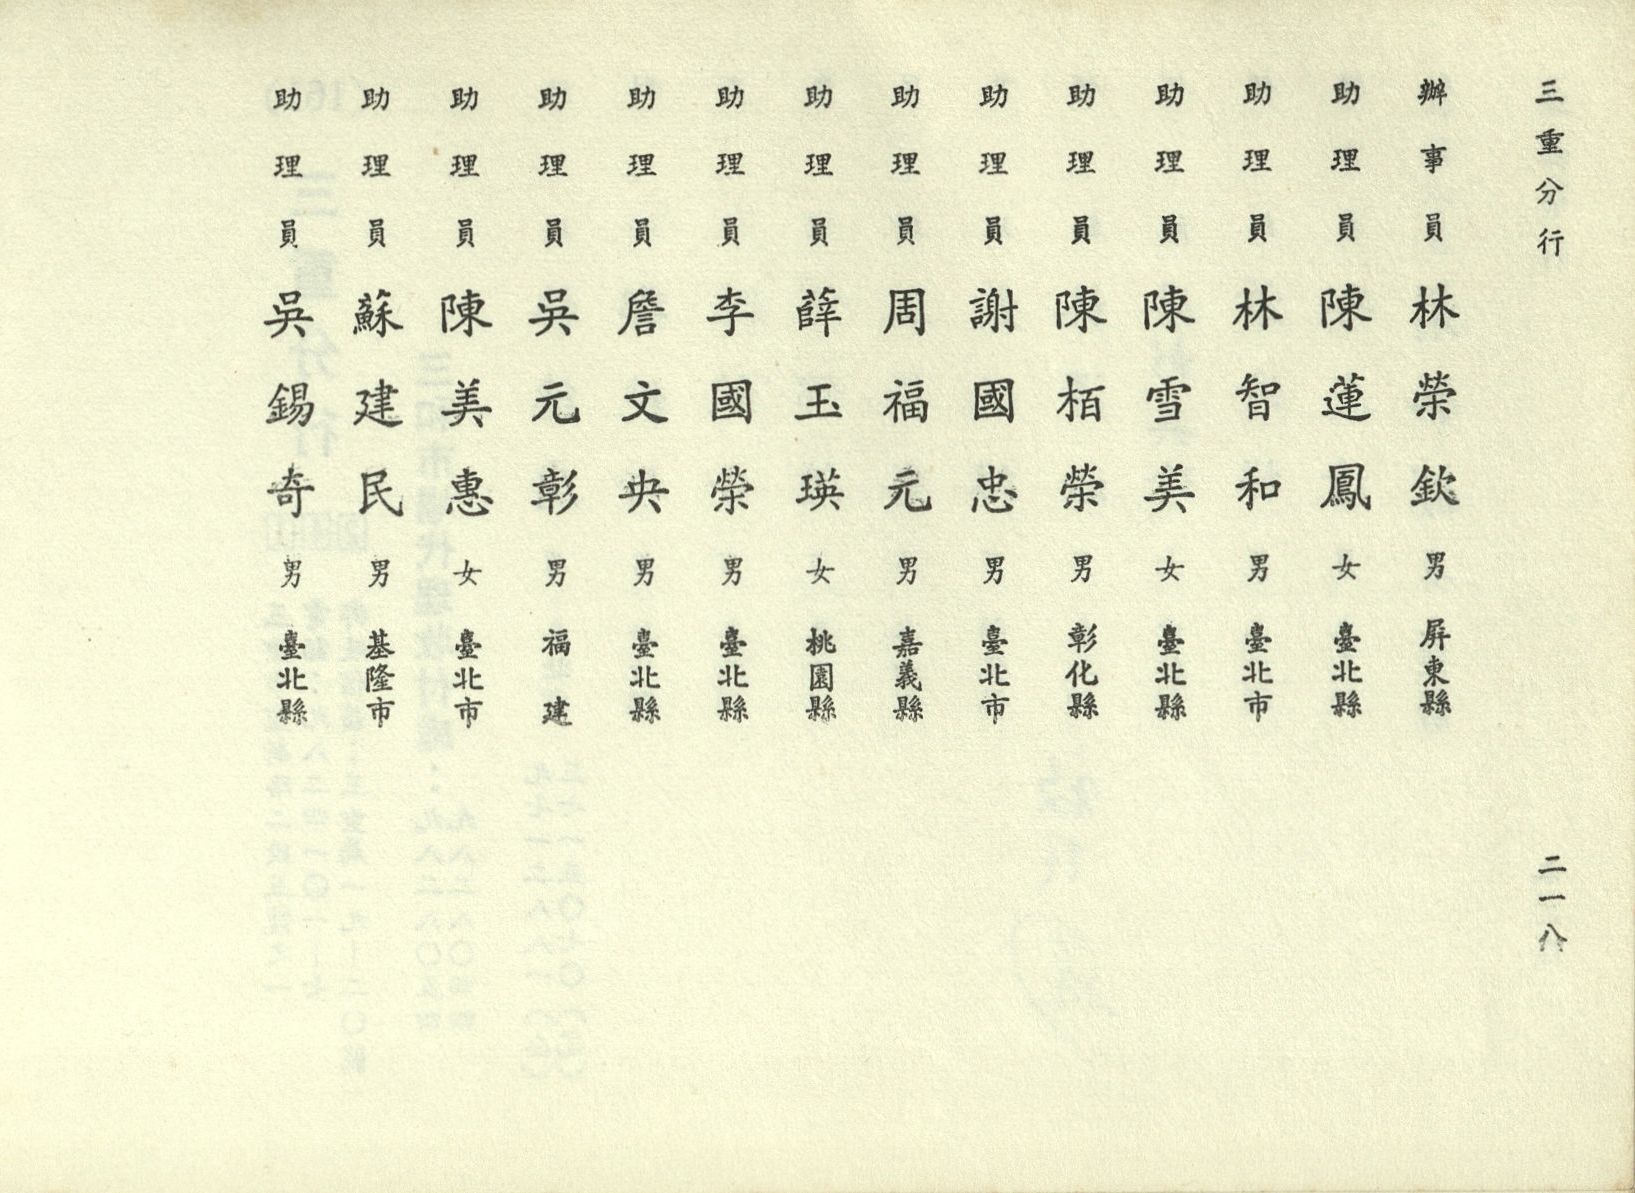 三重分行
二一八
辦事員 林榮欽 男 屏東縣
助理員 陳蓮鳳 女 臺北縣
助理員 林智和 男 臺北市
助理員 陳雪美 女 臺北縣
助理員 陳栢榮 男 彰化縣
助理員 謝國忠 男 臺北市
助理員 周福元 男 嘉義縣
助理員 薛玉瑛 女 桃園縣
助理員 李國榮 男 臺北縣
助理員 詹文央 男 臺北縣
助理員 吳元彰 男 福建
助理員 陳美惠 女 臺北市
助理員 蘇建民 男 基隆市
助理員 吳錫奇 男 臺北縣